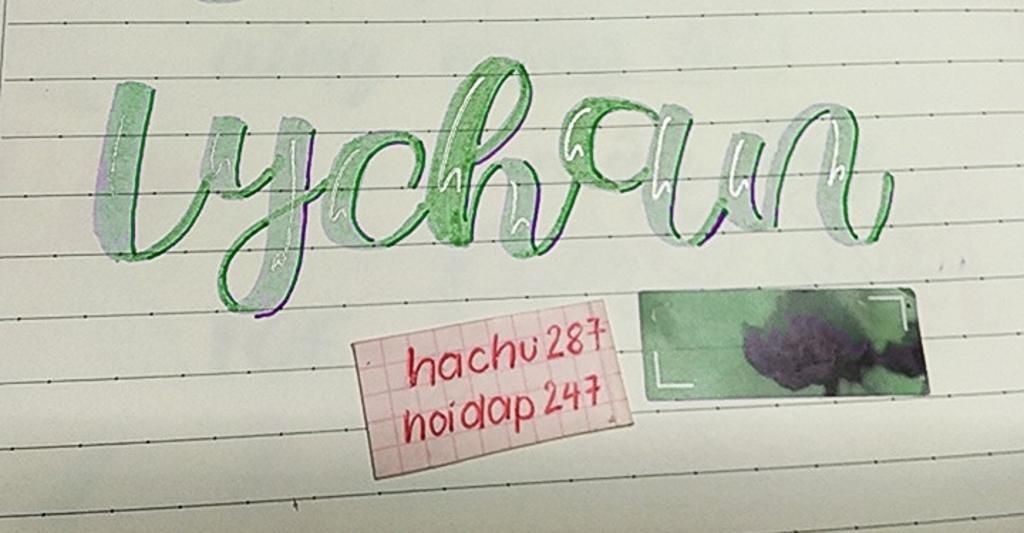 lychan
hachu287
hoidap247